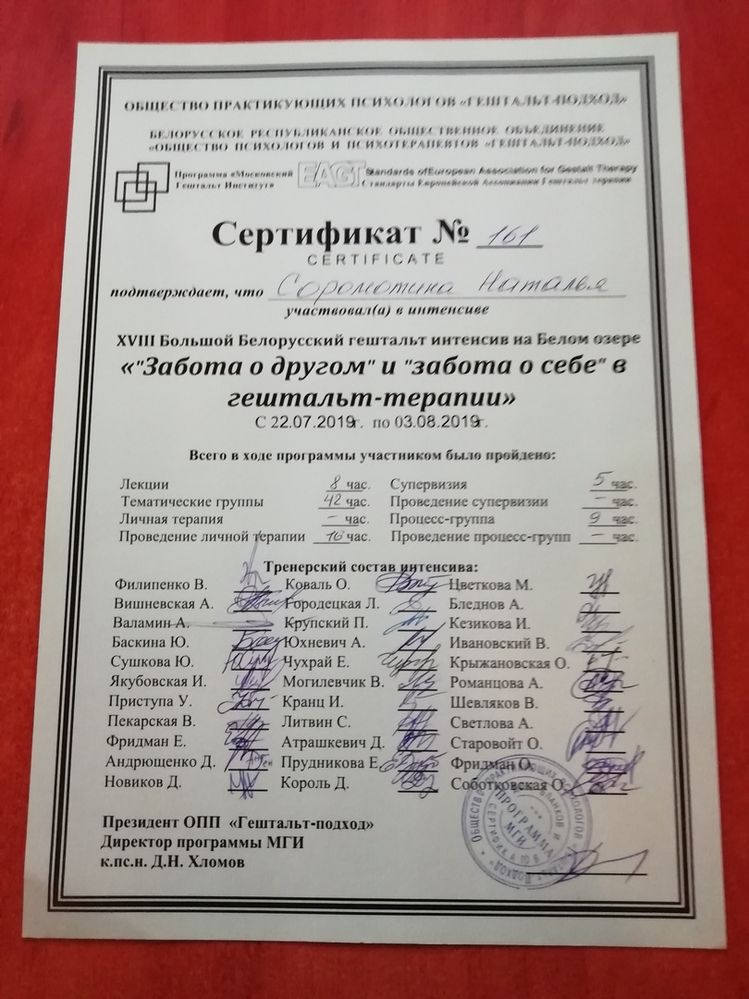 ОБЩЕСТВО ПРАКТИКУЮЩИХ ПСИХОЛОГОВ «ГЕШТАЛЬТ-ПОДХОД»
БЕЛОРУССКОЕ РЕСПУБЛИКАНСКОЕ ОБЩЕСТВЕННОЕ ОБЪЕДИНЕНИЕ
«ОБЩЕСТВО ПСИХОЛОГОВ И ПСИХОТЕРАПЕВТОВ «ГЕШТАЛЬТ-ПОДХОД»
Программа «Московский
Гештальт Институт»
EAGT
Standards of European Association for Gestalt Therapy
Стандарты Европейской Ассоциации Гештальт терапии
Сертификат № 161
CERTIFICATE
подтверждает, что Соромотина Наталья
участвовал(а) в интенсиве
XVIII Большой Белорусский гештальт интенсив на Белом озере
«"Забота о другом" и "забота о себе" в
гештальт-терапии»
С 22.07.2019г. по 03.08.2019г.
Всего в ходе программы участником было пройдено:
Лекции 8 час. Супервизия 5 час.
Тематические группы 42 час. Проведение супервизии – час.
Личная терапия – час. Процесс-группа 9 час.
Проведение личной терапии 10 час. Проведение процесс-групп – час.
Тренерский состав интенсива:
Филипенко В. Коваль О. Цветкова М.
Вишневская А. Городецкая Л. Бледнов А.
Валамин А. Крупский П. Кезикова И.
Баскина Ю. Юхневич А. Ивановский В.
Сушкова Ю. Чухрай Е. Крыжановская О.
Якубовская И. Могилевчик В. Романцова А.
Приступа У. Кранц И. Шевляков В.
Пекарская В. Литвин С. Светлова А.
Фридман Е. Атрашкевич Д. Старовойт О.
Андрющенко Д. Прудникова Е. Фридман О.
Новиков Д. Король Д. Соботковская О.
Президент ОПП «Гештальт-подход»
Директор программы МГИ
к.пс.н. Д.Н. Хломов
ПРОГРАММА
МГИ